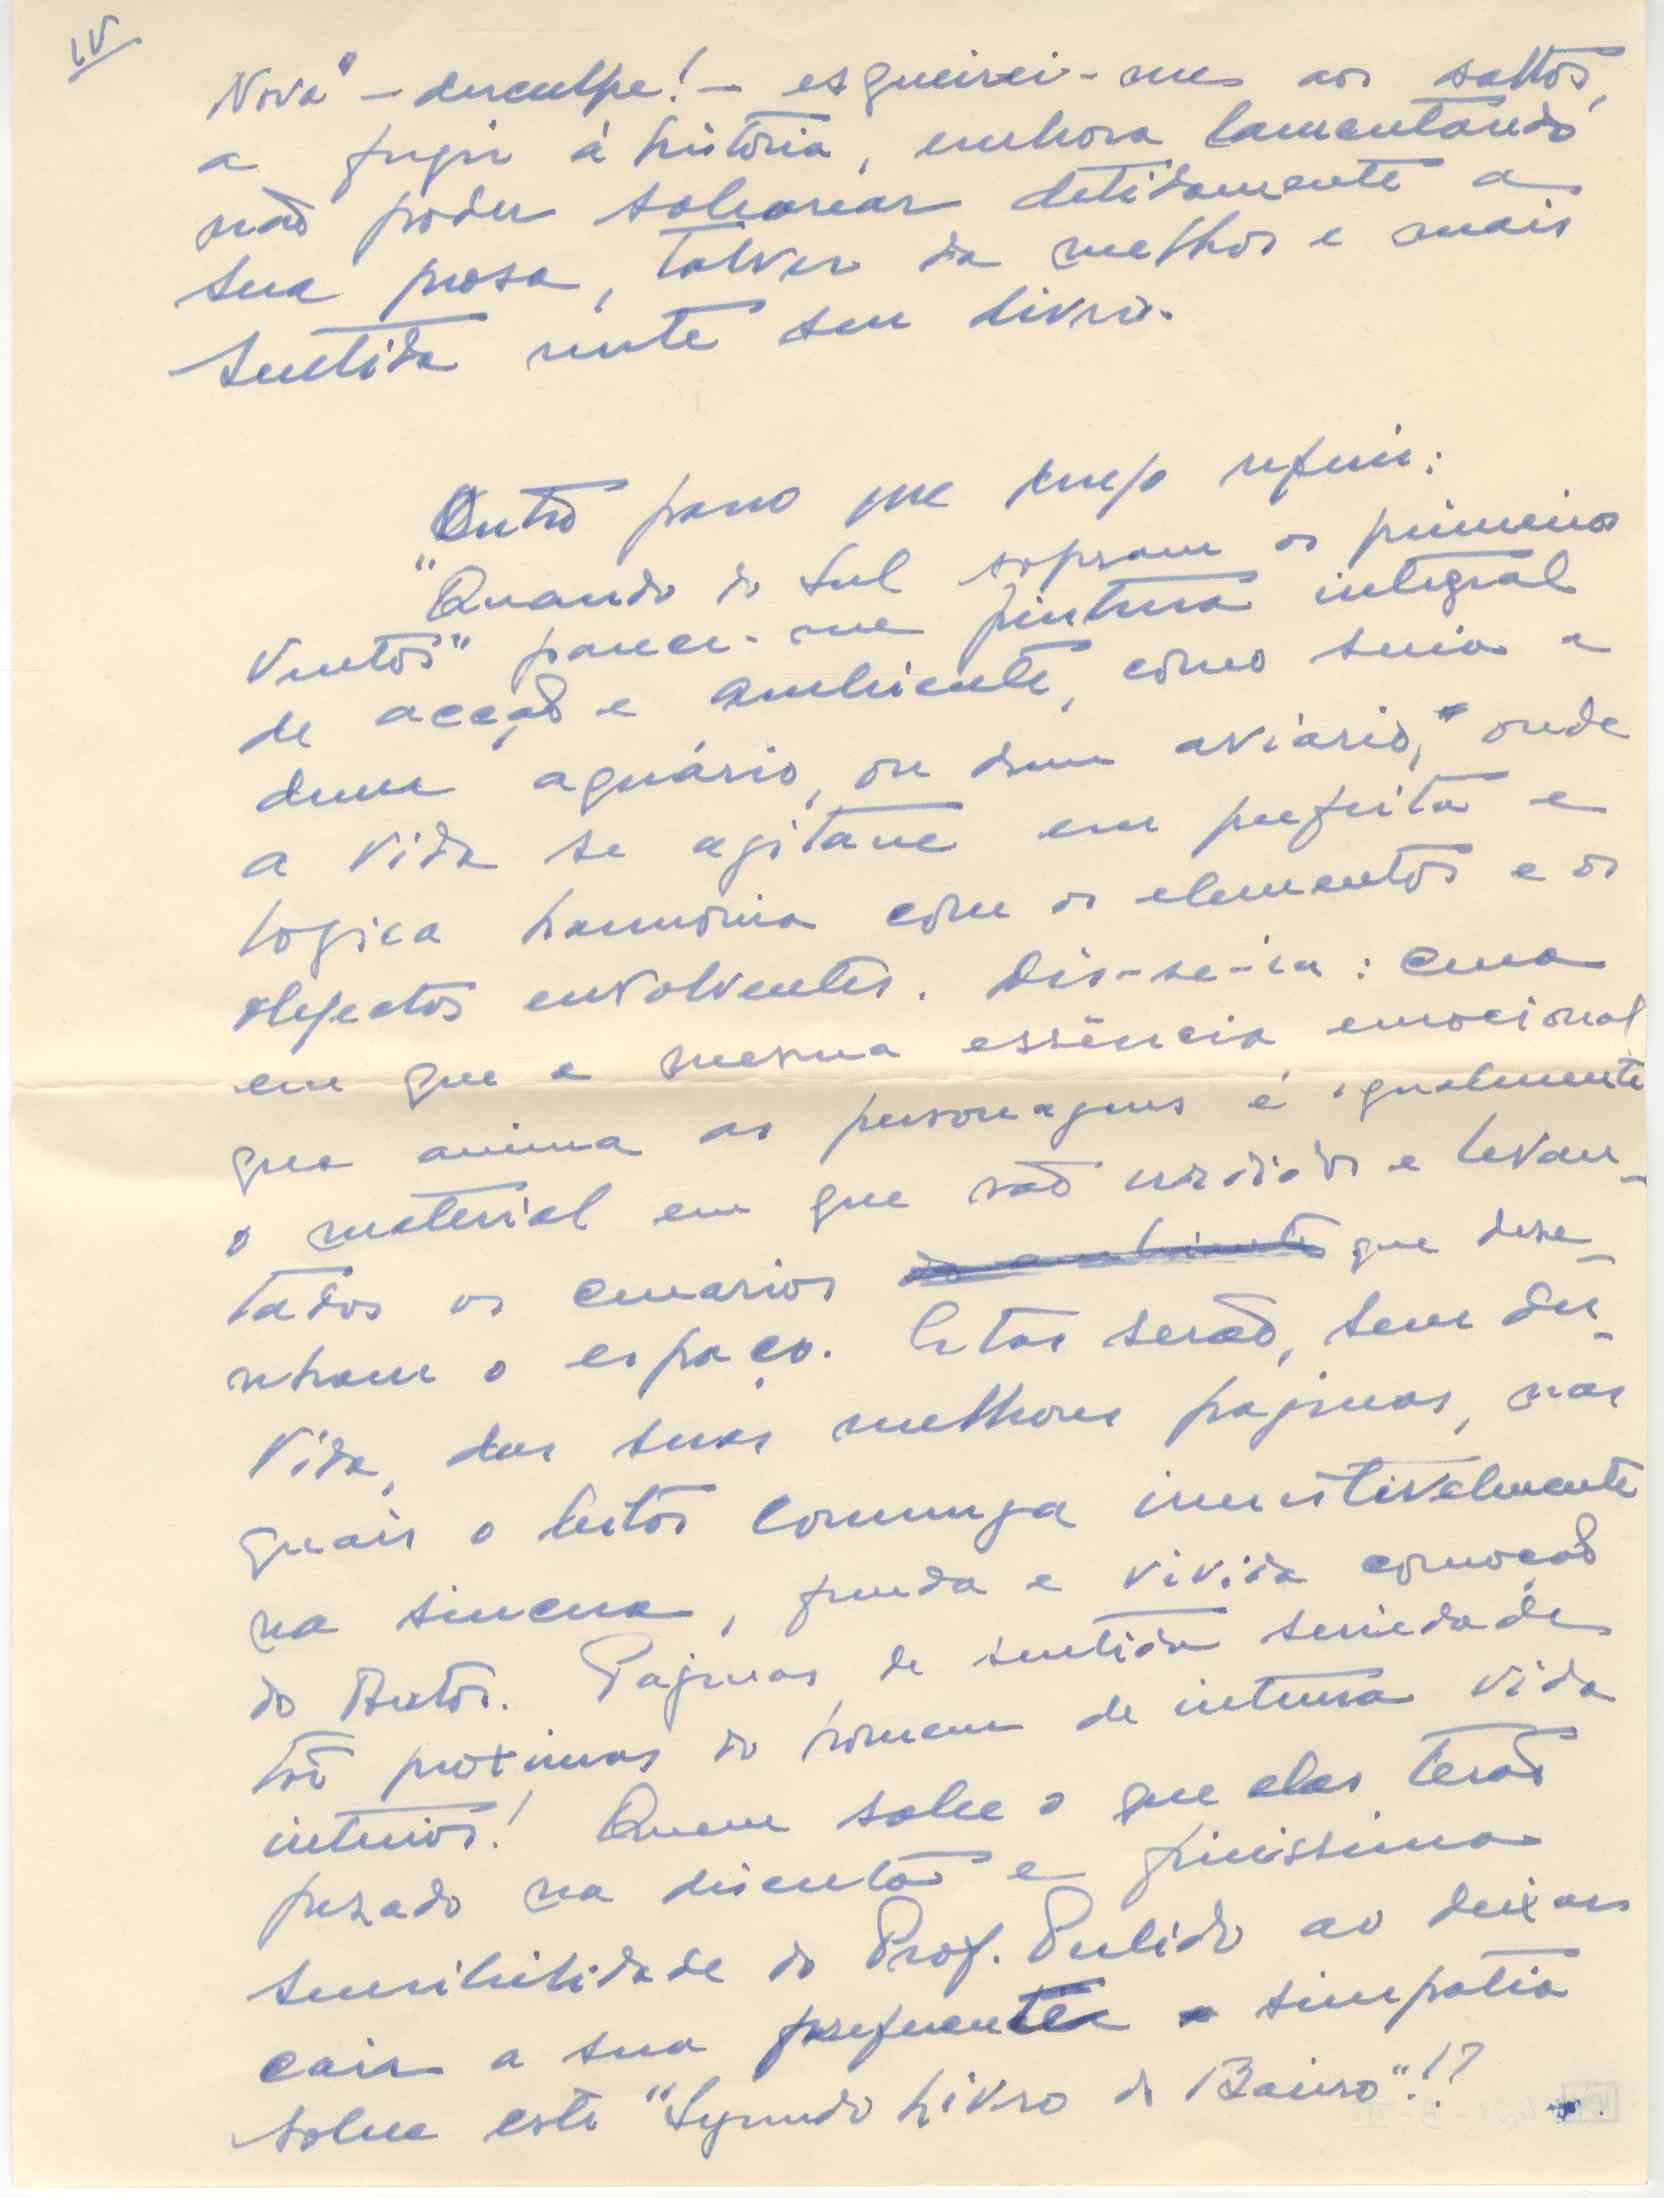 IV
Nova" – desculpe! – esgueirei-me aos saltos,
a fugir á história, embora lamentando
não poder saborear detidamente a
sua prosa, talvez da melhor e mais
sentida neste seu livro.
Outro passo que cumpre referir:
"Quando do Sul sopram os primeiros
Ventos" parece-me pintura integral
de acção e ambiente, como seria a
dum aquário, ou dum aviário, onde
a vida se agitasse em perfeita e
logica harmonia com os elementos e os
objectos envolventes. Dis-se-ia: cena
em que a mesma essência emocional
que anima as personagens é igualmente
o material em que são urdidos e levan-
tados os cenarios que dese-
nham o espaço. Estas serão, sem dú-
vida, das suas melhores paginas, nas
quais o leitor comunga irresistivelmente
na sincera, funda e vivida comoção
do Autor. Paginas de sentida seriedade
tão proximas do homem de intensa vida
interior! Quem sabe o que elas terão
pezado na discreta e finissima
sensibilidade do Prof. Pulido ao deixar
cair a sua simpatia
sobre este "Segundo Livro do Bairro"!?